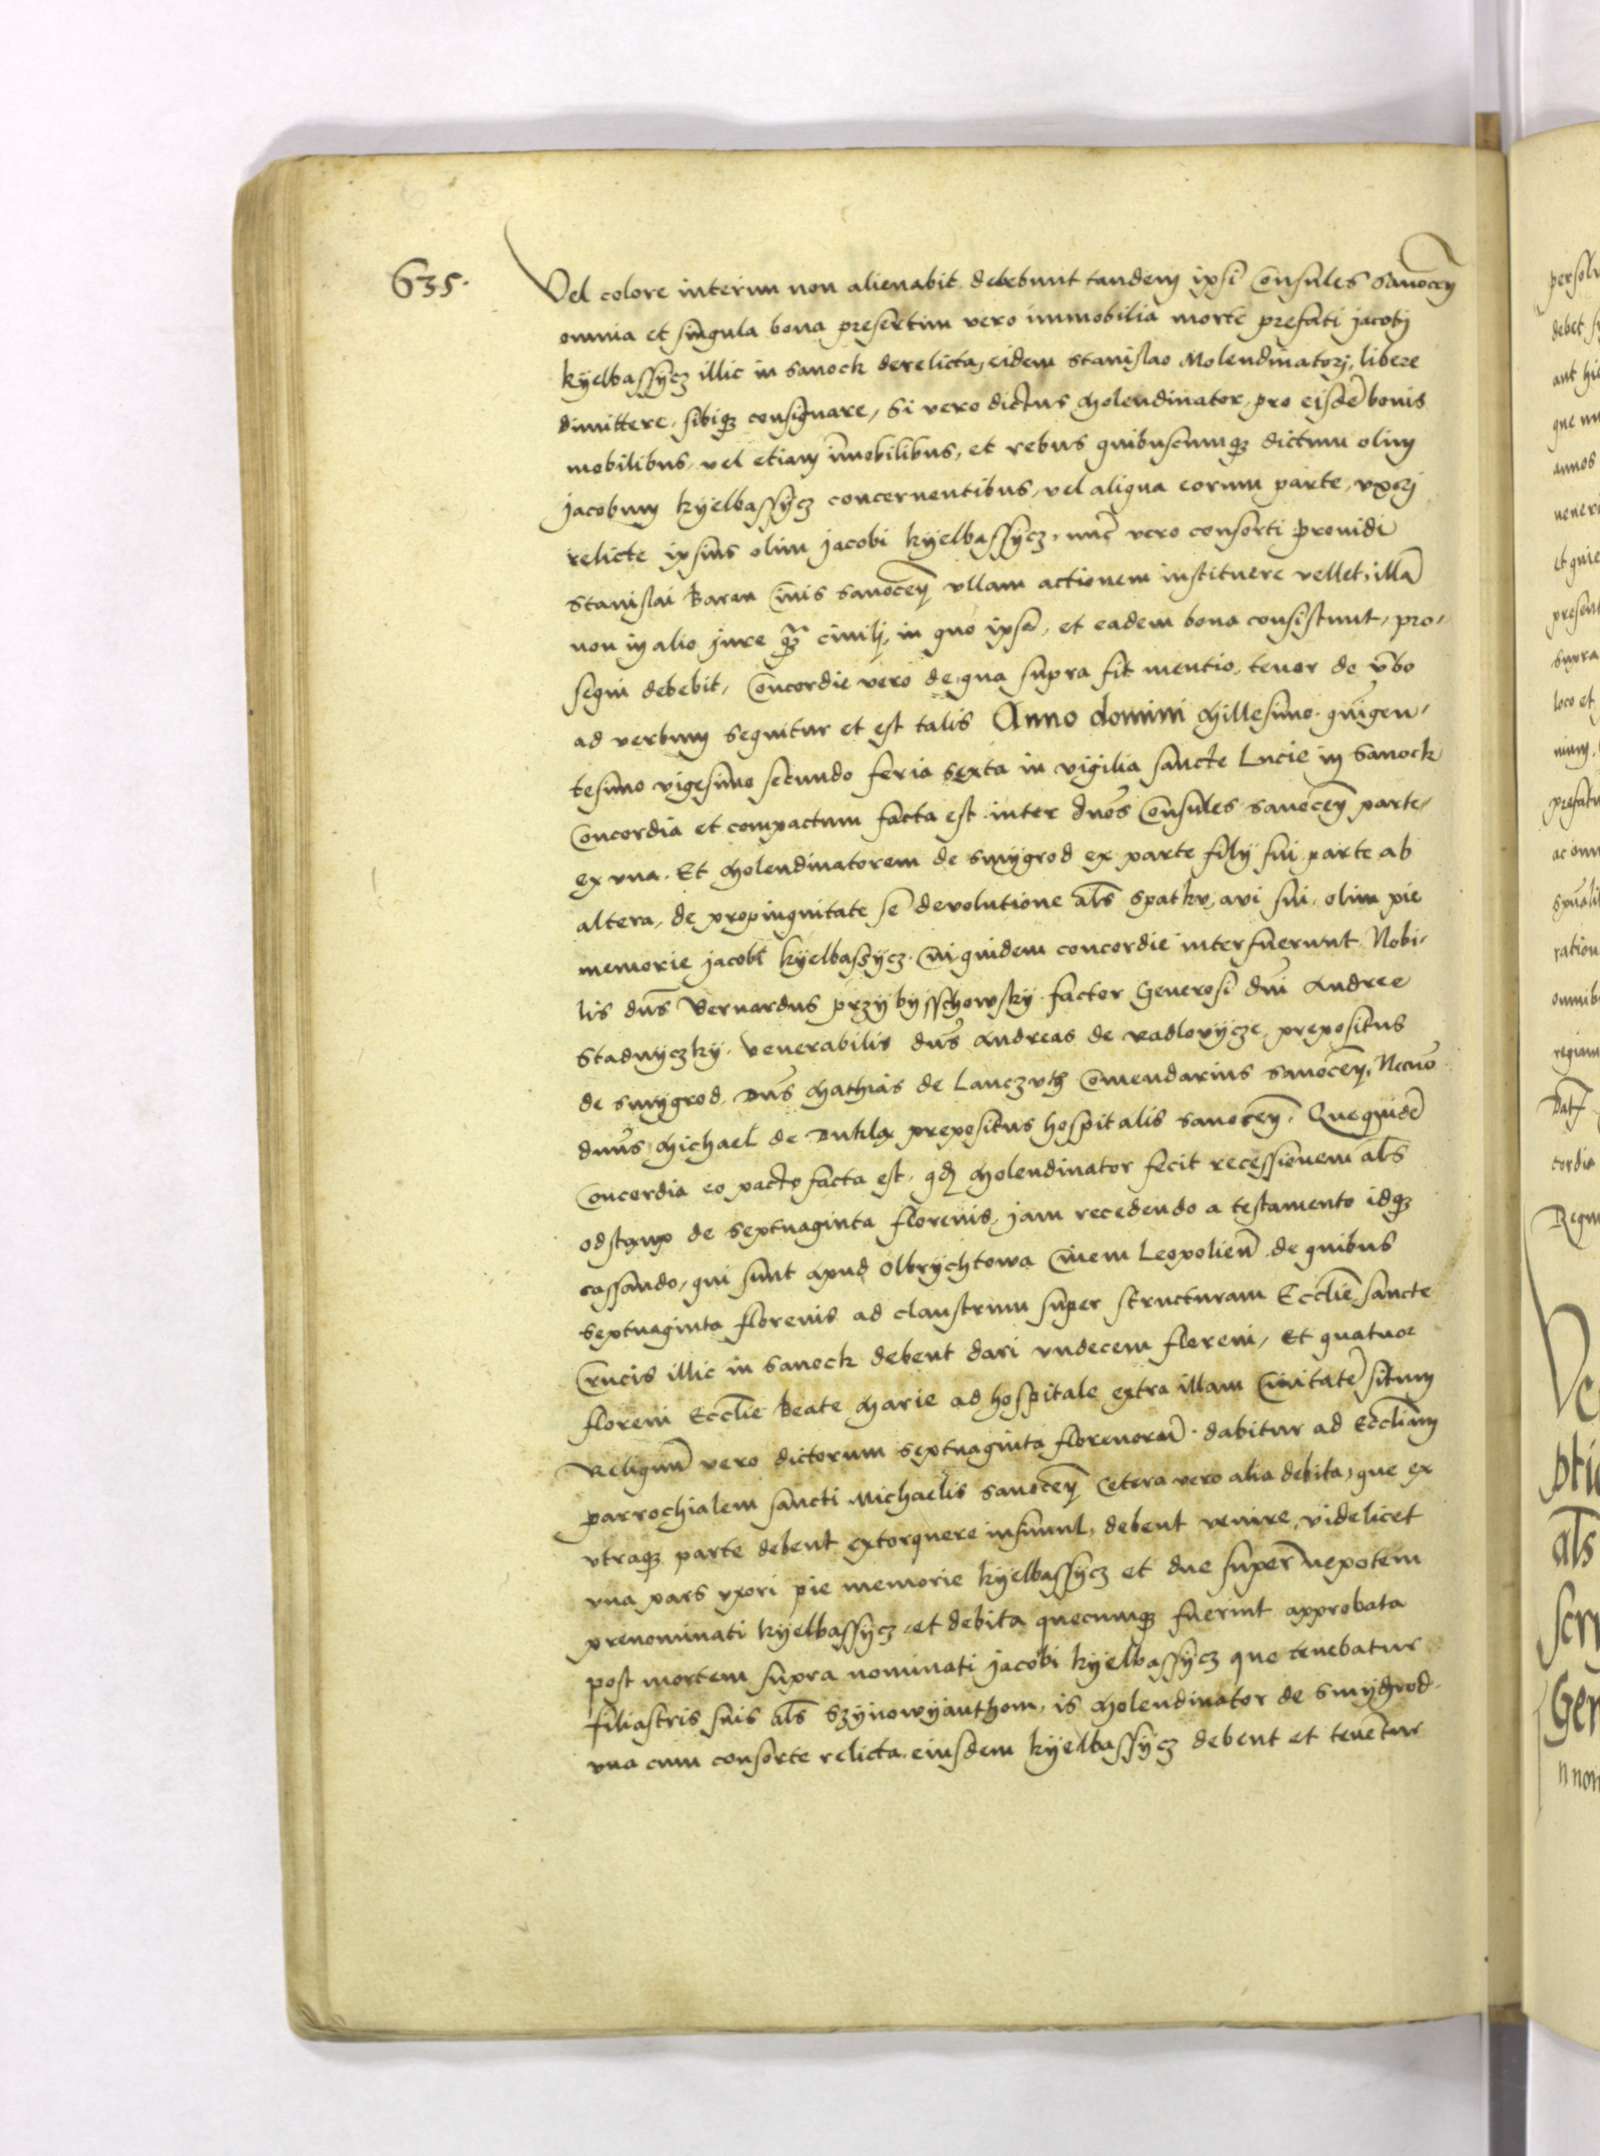 635.
Vel colore interim non alienabit debebunt tandem ipsi Consules Sanocen̄
omnia et singula bona presertim vero immobilia morte prefati jacobj
kyelbassycz illic in Sanock derelicta, eidem Stanislao Molendinatorj, libere
dimittere, sibiqȝ consignare, Si vero dictus Molendinator, pro eisdē bonis
mobilibus, vel etiam īmobilibus, et rebus quibuscumqȝ dictum olim
jacobum kyelbassycz concernentibus, vel aliqua eorum parte, vxorj
relicte ipsius olim jacobi kyelbassycz, nūc vero consorti prouidi
Stanislai Baran Ciuis Sanocen̄ vllam actionem instituere vellet, illā
non in alio jure qȝ̄ ciuilj, in quo ipsa, et eadem bona consistunt, pro-
sequi debebit, Concordie vero de qua supra fit mentio, tenor de v̄bo
ad verbum sequitur et est talis Anno domini Millesimo quīgen-
tesimo vigesimo secundo feria sexta in vigilia sancte Lucie in Sanock
Concordia et compactum facta est inter dn̄os Consules Sanocen̄ parte
ex vna. Et Molendinatorem de Smygrod ex parte filij sui parte ab
altera, de propinquitate se devolutione al̄s spatku, avi sui, olim pie
memorie jacobi kyelbaszycz. Cui quidem concordie interfuerunt Nobi-
lis dn̄s Bernardus przybysschowsky factor Generosi dn̄i Andree
Stadnyczky. Venerabilis dn̄s Andreas de Radlovycze prepositus
de Smygrod. Dn̄s Mathias de Lanczuth Comendarius Sanocen̄. Necnō
dn̄us Michael de Dukla prepositus hospitalis Sanocen̄. Quequidē
Concordia eo pacto facta est, qđ Molendinator fecit recessionem al̄s
odstamp de septuaginta florenis, jam recedendo a testamento idqȝ
cassando, qui sunt apud Olbrychtowa Ciuem Leopolien̄ de quibus
septuaginta florenis ad claustrum super structuram Eccl̄ie sancte
Crucis illic in Sanock debent dari vndecem floreni, Et quatuor
floreni Eccl̄ie Beate Marie ad hospitale extra illam Ciuitatē situm
Reliquū vero dictorum septuaginta florenorū. dabitur ad Eccl̄iam
parrochialem sancti Michaelis Sanocen̄ Cetera vero alia debita, que ex
vtraqȝ parte debent extorquere insimul, debent venire, videlicet
vna pars vxori pie memorie kyelbassycz et due super nepotem
prenominati kyelbassycz, et debita quecumqȝ fuerint approbata
post mortem supra nominati jacobi kyelbassycz que tenebatur
filiastris suis al̄s Szynowyanthom, is Molendinator de Smygrod
vna cum consorte relicta eiusdem kyelbassycz debent et tenētur